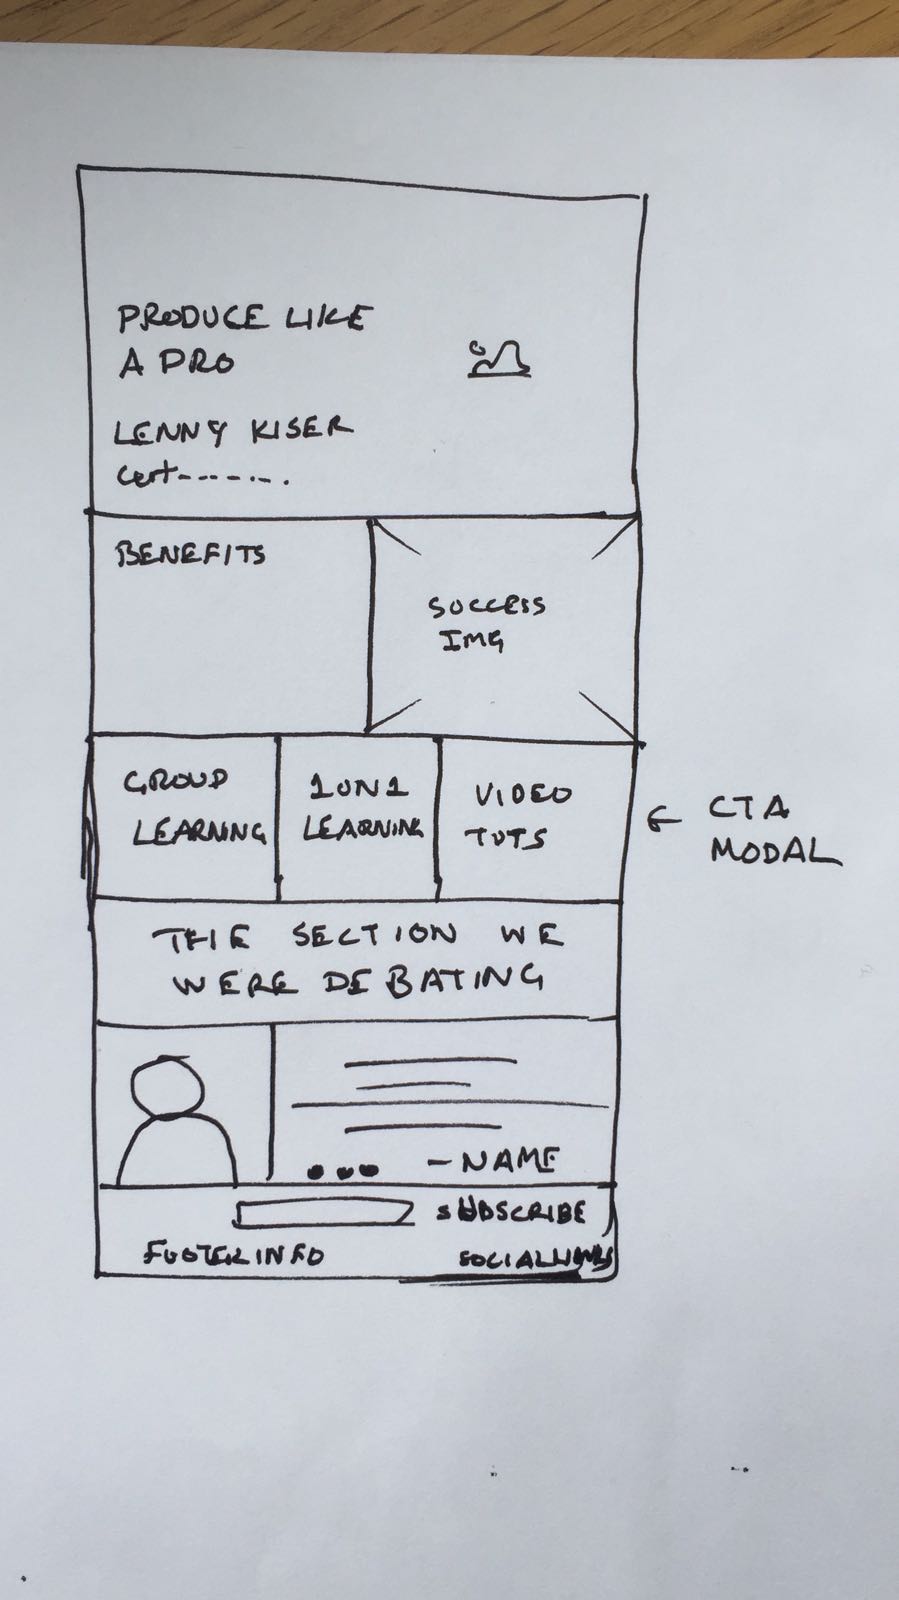 PRODUCE LIKE
A PRO
LENNY KISER
Cert-------.
BENEFITS
SUCCESS
IMG
GROUP
LEARNING
1ON1
LEARNING
VIDEO
TUTS
← CTA
MODAL
THE SECTION WE
WERE DEBATING
- NAME
SUBSCRIBE
FOOTER INFO
SOCIAL LINKS